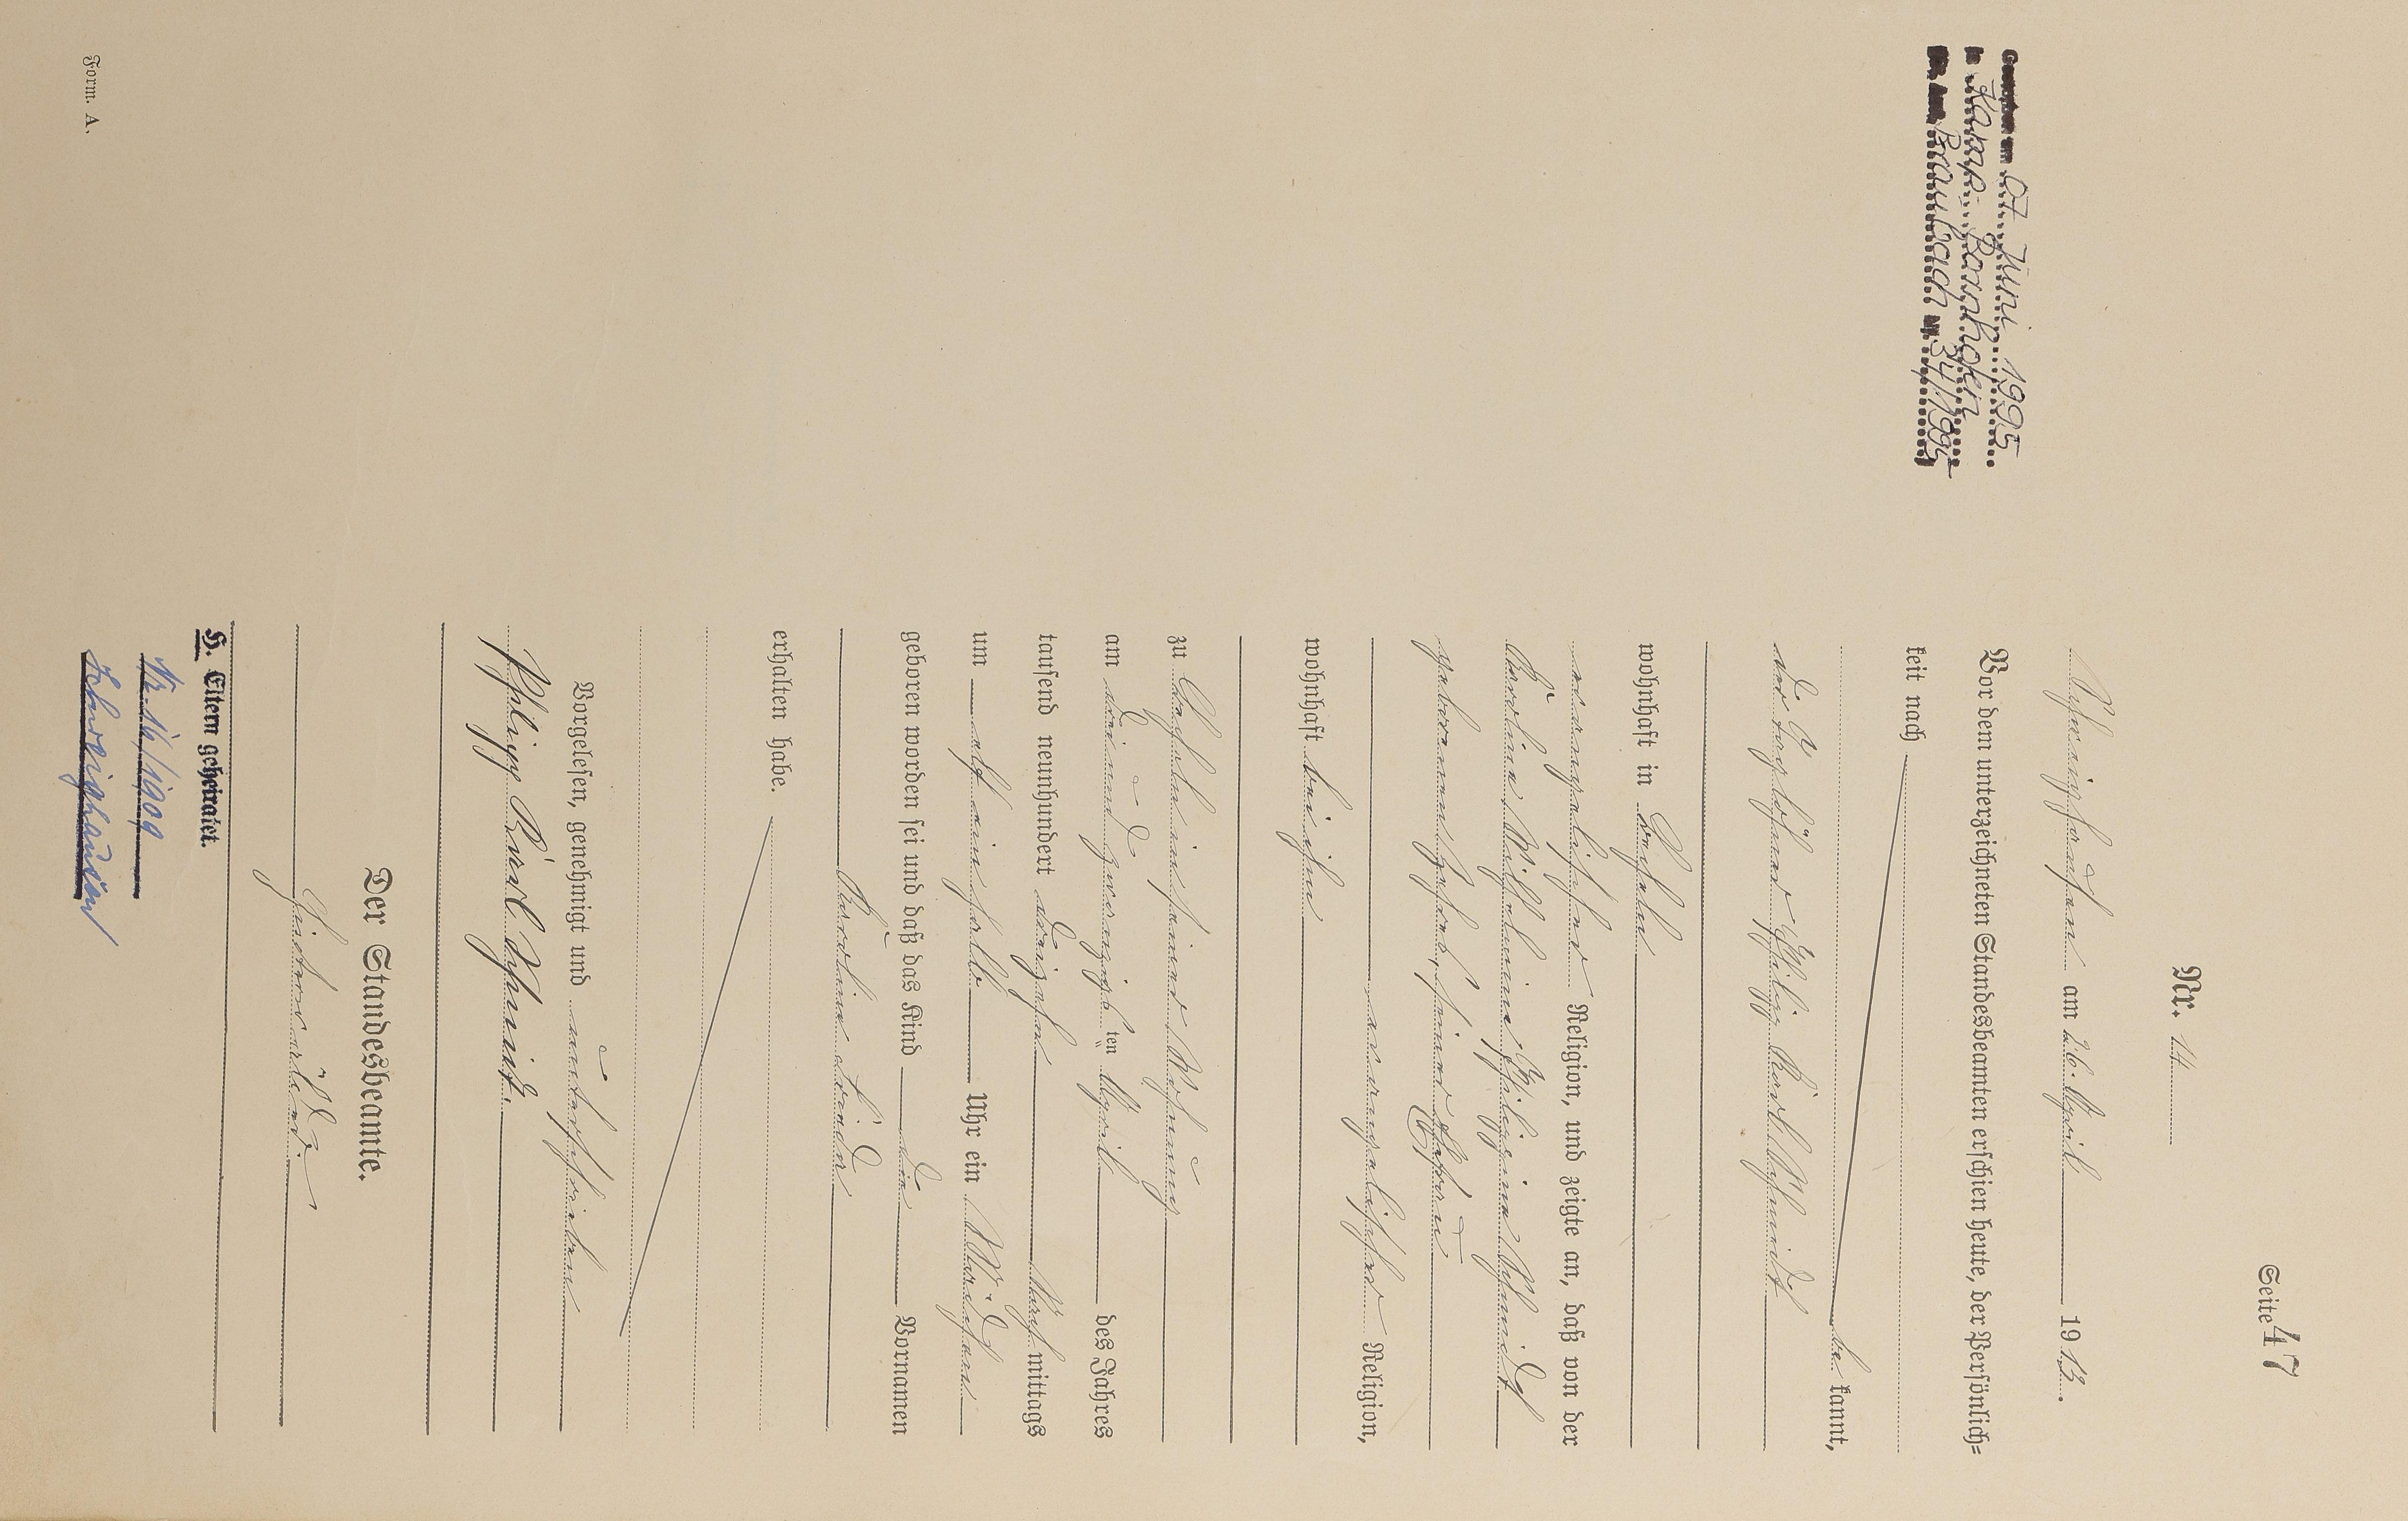 Seite 47
Nr. 11
Schweighausen am 26. April 1913.
Vor dem unterzeichneten Standesbeamten erschien heute, der Persönlich=
keit nach
be kannt,
der Tagelöhner Philipp Karl Schmidt
wohnhaft in Dessighofen
evangelischer Religion, und zeigte an, daß von der
Karoline Wilhelmine Philippine Schmidt
geborenen, seiner Ehefrau
evangelischer Religion,
wohnhaft bei ihm
zu in seiner Wohnung
am drei und zwanzigsten April des Jahres
tausend neunhundert dreizehn Nach mittags
um elf ein halb Uhr ein Mädchen
geboren worden sei und daß das Kind die Vornamen
Karoline Frieda
erhalten habe.
Vorgelesen, genehmigt und unterschrieben
Philipp Karl Schmidt.
Der Standesbeamte.
H. Eltern geheiratet
Nr. 16/1909
Schweighausen
Gestorben am 07. Juni 1995
in Kamp-Bornhofen
Braubach Nr. 34/1995
Form. A.